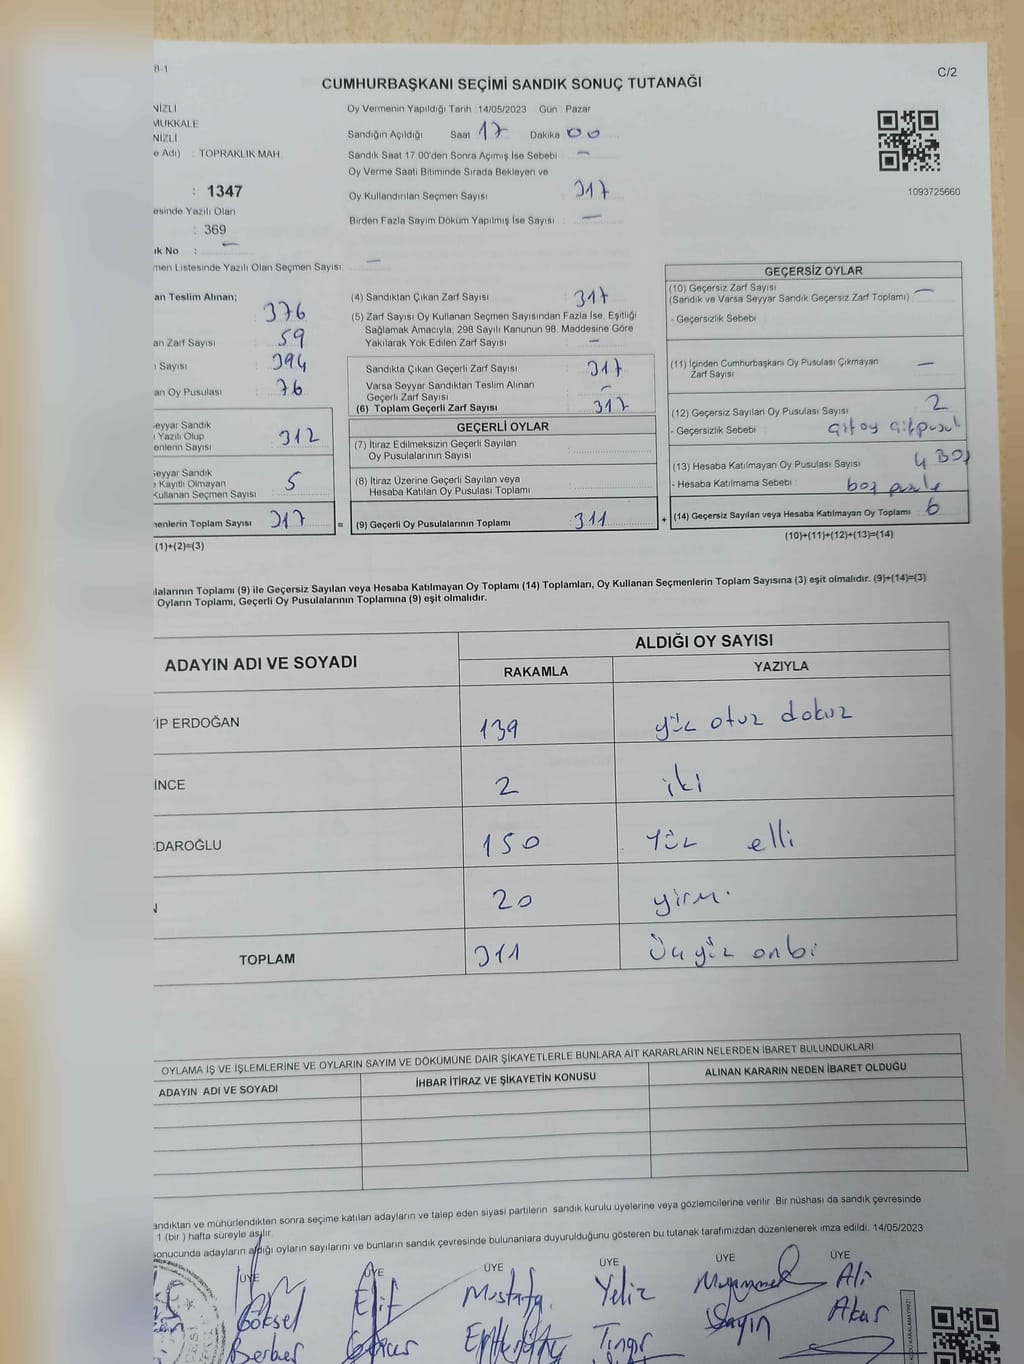 B-1
C/2
CUMHURBAŞKANI SEÇİMİ SANDIK SONUÇ TUTANAĞI
NİZLİ
MUKKALE
NİZLİ
e Adı) : TOPRAKLIK MAH
: 1347
esinde Yazılı Olan
: 369
ık No : –
men Listesinde Yazılı Olan Seçmen Sayısı: –
Oy Vermenin Yapıldığı Tarih :14/05/2023 Gün : Pazar
Sandığın Açıldığı Saat 17 Dakika 00
Sandık Saat 17:00'den Sonra Açımış İse Sebebi : –
Oy Verme Saati Bitiminde Sırada Bekleyen ve
Oy Kullandırılan Seçmen Sayısı : 317
Birden Fazla Sayım Döküm Yapılmış İse Sayısı : –
1093725660
an Teslim Alınan;
376
an Zarf Sayısı 59
ı Sayısı 394
an Oy Pusulası 76
Seyyar Sandık
e Yazılı Olup
enlerin Sayısı 312
Seyyar Sandık
e Kayıtlı Olmayan
Kullanan Seçmen Sayısı 5
menlerin Toplam Sayısı 317 =
(1)+(2)=(3)
(4) Sandıktan Çıkan Zarf Sayısı : 317
(5) Zarf Sayısı Oy Kullanan Seçmen Sayısından Fazla İse, Eşitliği
Sağlamak Amacıyla, 298 Sayılı Kanunun 98. Maddesine Göre
Yakılarak Yok Edilen Zarf Sayısı : –
Sandıkta Çıkan Geçerli Zarf Sayısı : 317
Varsa Seyyar Sandıktan Teslim Alınan
Geçerli Zarf Sayısı : –
(6) Toplam Geçerli Zarf Sayısı : 317
GEÇERLİ OYLAR
(7) İtiraz Edilmeksizin Geçerli Sayılan
Oy Pusulalarının Sayısı :
(8) İtiraz Üzerine Geçerli Sayılan veya
Hesaba Katılan Oy Pusulası Toplamı :
(9) Geçerli Oy Pusulalarının Toplamı : 311 +
GEÇERSİZ OYLAR
(10) Geçersiz Zarf Sayısı
(Sandık ve Varsa Seyyar Sandık Geçersiz Zarf Toplamı) : –
- Geçersizlik Sebebi :
(11) İçinden Cumhurbaşkanı Oy Pusulası Çıkmayan
Zarf Sayısı : –
(12) Geçersiz Sayılan Oy Pusulası Sayısı : 2
- Geçersizlik Sebebi :
(13) Hesaba Katılmayan Oy Pusulası Sayısı : 4 BOŞ
- Hesaba Katılmama Sebebi : boş
(14) Geçersiz Sayılan veya Hesaba Katılmayan Oy Toplamı : 6
(10)+(11)+(12)+(13)=(14)
ulalarının Toplamı (9) ile Geçersiz Sayılan veya Hesaba Katılmayan Oy Toplamı (14) Toplamları, Oy Kullanan Seçmenlerin Toplam Sayısına (3) eşit olmalıdır. (9)+(14)=(3)
Oyların Toplamı, Geçerli Oy Pusulalarının Toplamına (9) eşit olmalıdır.
ADAYIN ADI VE SOYADI
ALDIĞI OY SAYISI
RAKAMLA YAZIYLA
YİP ERDOĞAN 139 yüz otuz dokuz
İNCE 2 iki
ÇDAROĞLU 150 Yüz elli
N 20 yirmi
TOPLAM 311 Üçyüz onbi
OYLAMA İŞ VE İŞLEMLERİNE VE OYLARIN SAYIM VE DÖKÜMÜNE DAİR ŞİKAYETLERLE BUNLARA AİT KARARLARIN NELERDEN İBARET BULUNDUKLARI
ADAYIN ADI VE SOYADI İHBAR İTİRAZ VE ŞİKAYETİN KONUSU ALINAN KARARIN NEDEN İBARET OLDUĞU
andıktan ve mühürlendikten sonra seçime katılan adayların ve talep eden siyasi partilerin sandık kurulu üyelerine veya gözlemcilerine verilir. Bir nüshası da sandık çevresinde
1 (bir ) hafta süreyle asılır.
sonucunda adayların aldığı oyların sayılarını ve bunların sandık çevresinde bulunanlara duyurulduğunu gösteren bu tutanak tarafımızdan düzenlenerek imza edildi. 14/05/2023
ÜYE ÜYE ÜYE ÜYE ÜYE ÜYE
Göksel Elif Mustafa Yeliz Muammer Ali
Berber Sayın Akar